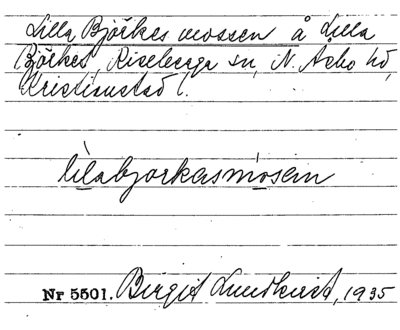 Lilla Björkes mossen å Lilla
Björkes, Riseberga sn, N. Åsbo hd,
Kristianstad l.
lilabjorkasmosein
Nr 5501. Birgit Lundkvist, 1935